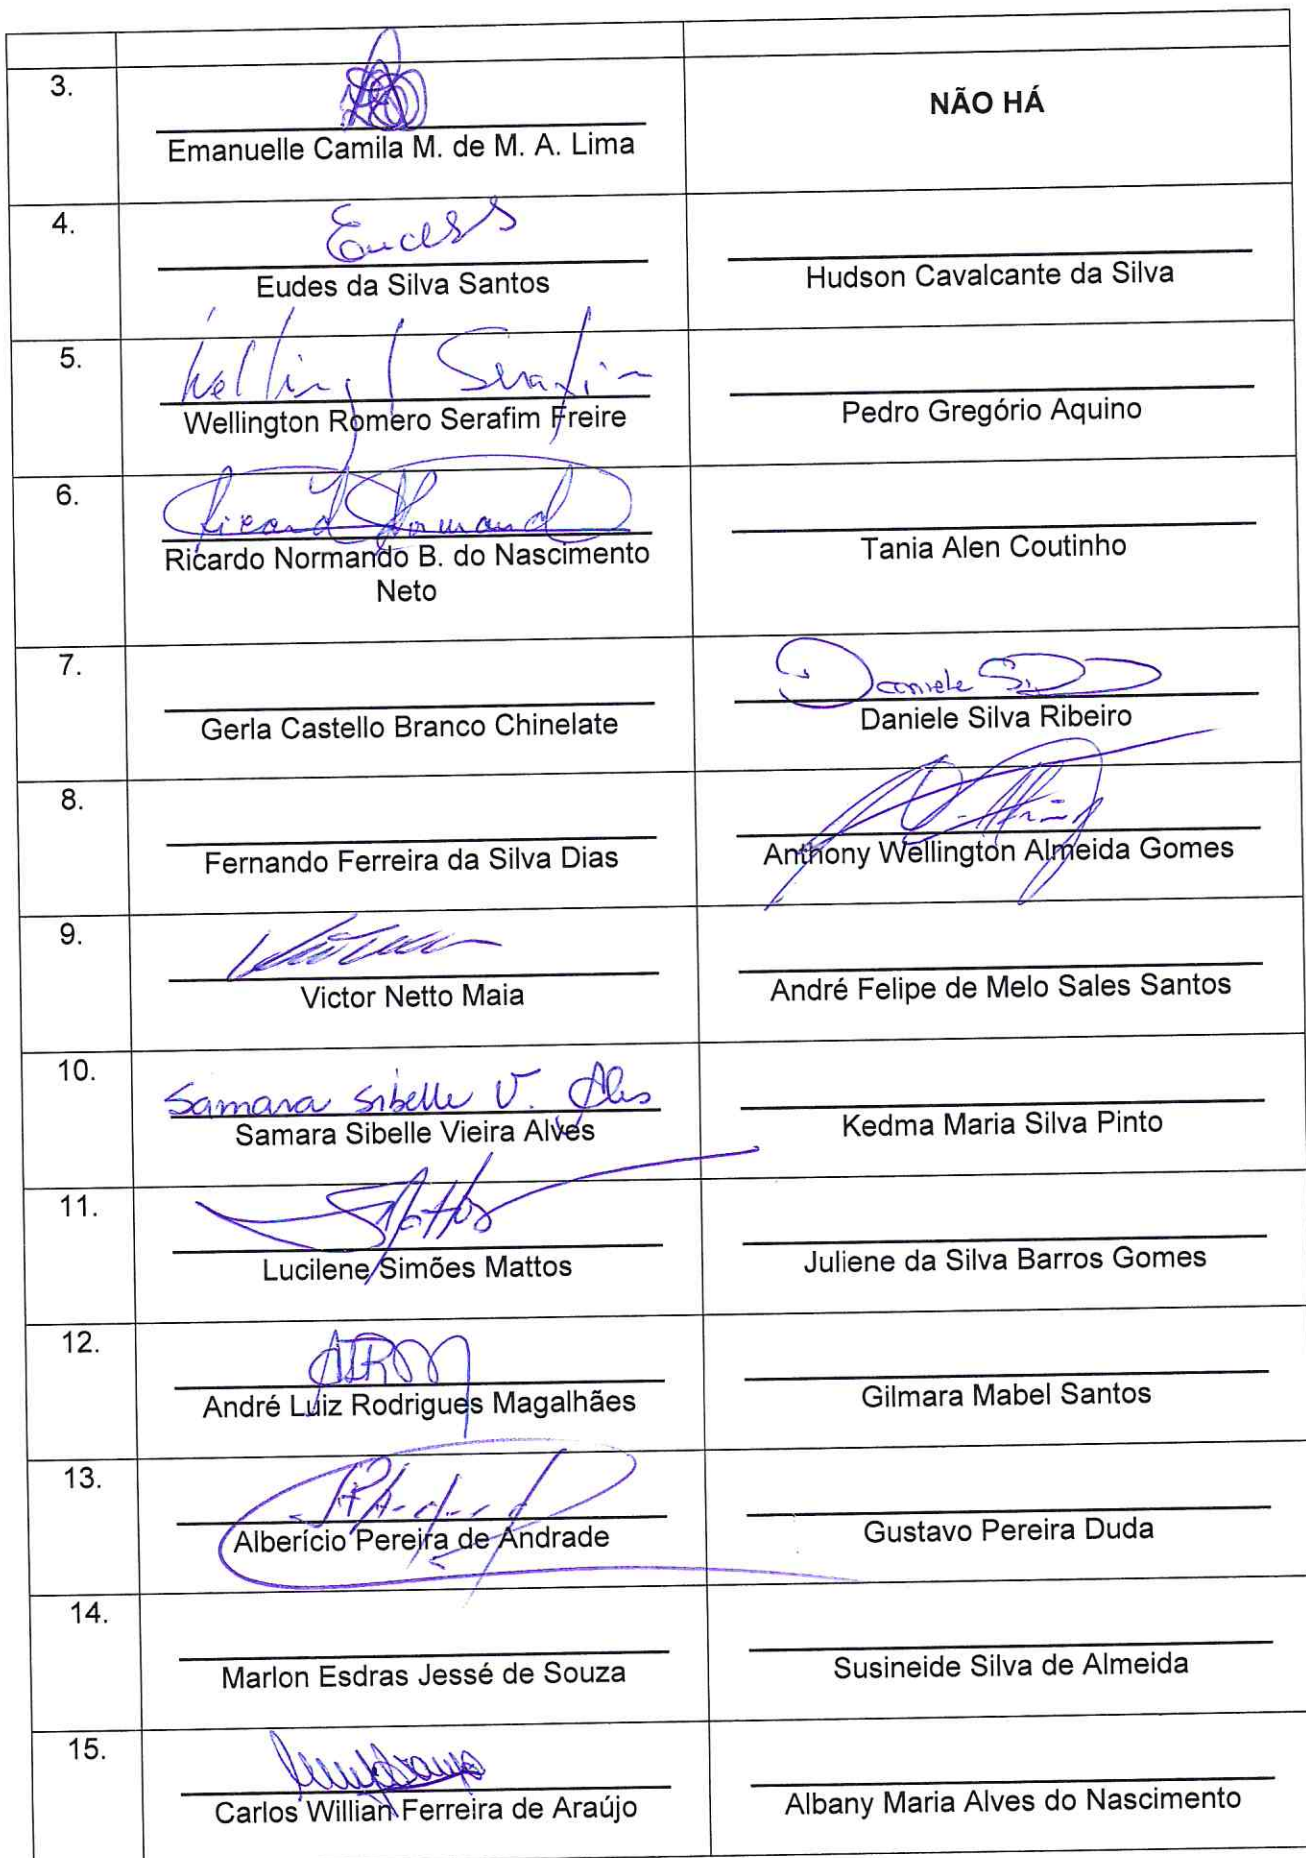 3.
Emanuelle Camila M. de M. A. Lima
NÃO HÁ
4.
Eudes
Eudes da Silva Santos
Hudson Cavalcante da Silva
5.
Welling Serafim
Wellington Romero Serafim Freire
Pedro Gregório Aquino
6.
Ricard Normand
Ricardo Normando B. do Nascimento
Neto
Tania Alen Coutinho
7.
Gerla Castello Branco Chinelate
Daniele
Daniele Silva Ribeiro
8.
Fernando Ferreira da Silva Dias
Anthony Wellington Almeida Gomes
9.
Victor Netto Maia
André Felipe de Melo Sales Santos
10.
Samara Sibelle V. Alves
Samara Sibelle Vieira Alves
Kedma Maria Silva Pinto
11.
Mattos
Lucilene Simões Mattos
Juliene da Silva Barros Gomes
12.
ALRM
André Luiz Rodrigues Magalhães
Gilmara Mabel Santos
13.
Alberício Pereira de Andrade
Gustavo Pereira Duda
14.
Marlon Esdras Jessé de Souza
Susineide Silva de Almeida
15.
Carlos Willian Ferreira de Araújo
Albany Maria Alves do Nascimento